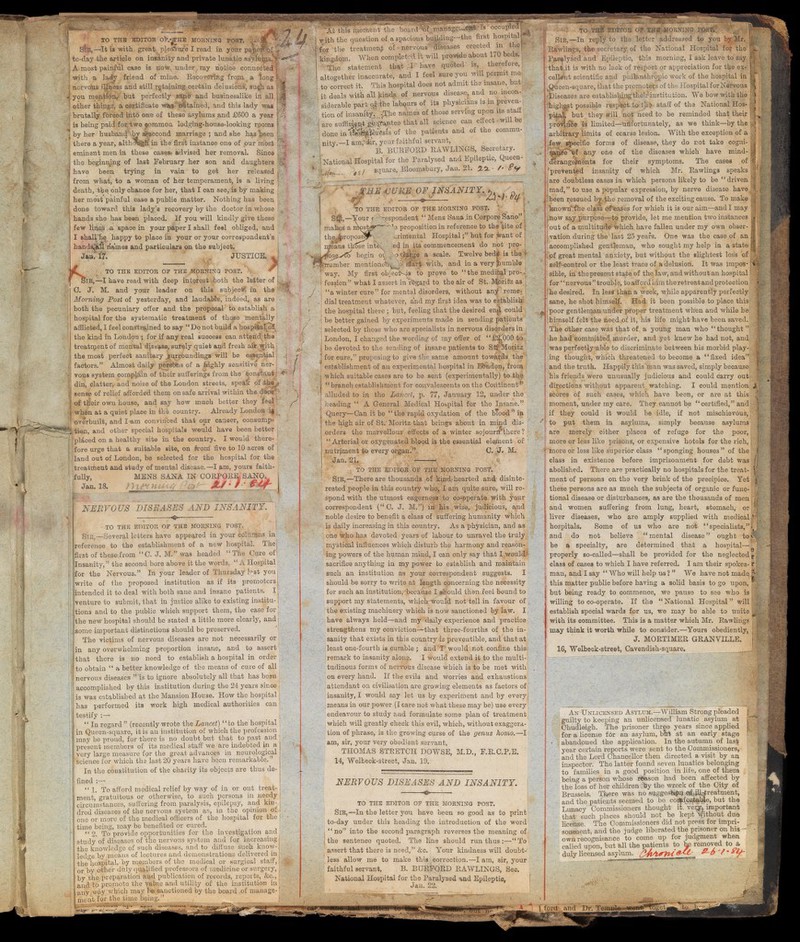 TO THE EDITOR OF THE MORNING POST.
SIR,—It is with great pleasure I read in your paper of
to-day the article on insanity and private lunatic asylums.
A most painful case is now under my notice connected
with a lady friend of mine. Recovering from a long
nervous illness and still retaining certain delusions, such as
you mention, but perfectly sane and businesslike in all
other things, a certificate was obtained, and this lady was
brutally forced into one of these asylums and £600 a year
is being paid for two common lodging-house-looking rooms
by her husband by a second marriage; and she has been
there a year, although in the first instance one of our most
eminent men in these cases advised her removal. Since
the beginning of last February her son and daughters
have been trying in vain to get her released
from what, to a woman of her temperament, is a living
death, the only chance for her, that I can see, is by making
her most painful case a public matter. Nothing has been
done toward this lady's recovery by the doctor in whose
hands she has been placed. If you will kindly give these
few lines a space in your paper I shall feel obliged, and
I shall be happy to place in your or your correspondent's
hands all names and particulars on the subject.
Jan. 17. JUSTICE.
TO THE EDITOR OF THE MORNING POST.
SIR,—I have read with deep interest both the letter of
C. J. M. and your leader on this subject in the
Morning Post of yesterday, and laudable, indeed, as are
both the pecuniary offer and the proposal to establish a
hospital for the systematic treatment of those mentally
afflicted, I feel constrained to say "Do not build a hospital of
the kind in London; for if any real success can attend the
treatment of mental disease, surely quiet and fresh air with
the most perfect sanitary surroundings will be essential
factors." Almost daily patients of a highly sensitive ner-
vous system complain of their sufferings from the
din, clatter, and noise of the London streets, speak of the
sense of relief afforded them on safe arrival within the door
of their own house, and say how much better they feel
when at a quiet place in the country. Already London is
overbuilt, and I am convinced that our cancer, consump-
tion, and other special hospitals would have been better
placed on a healthy site in the country. I would there-
fore urge that a suitable site, on from five to 10 acres of
land out of London, be selected for the hospital for the
treatment and study of mental disease.—I am, yours faith-
fully, MENS SANA IN CORPORE SANO.
Jan. 18.
NERVOUS DISEASES AND INSANITY.
TO THE EDITOR OF THE MORNING POST.
SIR,—Several letters have appeared in your columns in
reference to the establishment of a new hospital. The
first of these from "C. J. M." was headed "The Cure of
Insanity," the second bore above it the words, "A Hospital
for the Nervous." In your leader of Thursday last you
write of the proposed institution as if its promoters
intended it to deal with both sane and insane patients. I
venture to submit, that in justice alike to existing institu-
tions and to the public which support them, the case for
the new hospital should be stated a little more clearly, and
some important distinctions should be preserved.
The victims of nervous diseases are not necessarily or
in any overwhelming proportion insane, and to assert
that there is no need to establish a hospital in order
to obtain "a better knowledge of the means of cure of all
nervous diseases" is to ignore absolutely all that has been
accomplished by this institution during the 24 years since
is was established at the Mansion House. How the hospital
has performed its work high medical authorities can
testify:—
"In regard" (recently wrote the Lancet) "to the hospital
in Queen-square, it is an institution of which the profession
may be proud, for there is no doubt but that to past and
present members of its medical staff we are indebted in a
very large measure for the great advances in neurological
science for which the last 20 years have been remarkable."
In the constitution of the charity its objects are thus de-
fined:—
"1. To afford medical relief by way of in or out treat-
ment, gratuitous or otherwise, to such persons in needy
circumstances, suffering from paralysis, epilepsy, and kin-
dred diseases of the nervous system as, in the opinion of
one or more of the medical officers of the hospital for the
time being, may be benefited or cured.
"2. To provide opportunities for the investigation and
study of diseases of the nervous system and for increasing
the knowledge of such diseases, and to diffuse such know-
ledge by means of lectures and demonstrations delivered in
the hospital, by members of the medical or surgical staff,
or by other duly qualified professors of medicine or surgery,
by the preparation and publication of records, reports, &c.,
and to promote the value and utility of the institution in
any way which may be sanctioned by the board of manage-
ment for the time being."
At this moment the board of management is occupied
with the question of a spacious building—the first hospital
for the treatment of nervous diseases erected in the
kingdom. When completed it will provide about 170 beds.
The statement that I have quoted is, therefore,
altogether inaccurate, and I feel sure you will permit me
to correct it. This hospital does not admit the insane, but
it deals with all kinds of nervous disease, and no incon-
siderable part of the labours of its physicians is in preven-
tion of insanity. The names of those serving upon its staff
are sufficient guarantee that all science can effect will be
done in the interests of the patients and of the commu-
nity.—I am, sir, your faithful servant,
B. BURFORD RAWLINGS, Secretary.
National Hospital for the Paralysed and Epileptic, Queen-
square, Bloomsbury, Jan. 21. 22-1-84
THE CURE OF INSANITY. 23-1-84
TO THE EDITOR OF THE MORNING POST.
SIR,—Your correspondent "Mens Sana in Corpore Sano"
makes a most proposition in reference to the site of
the proposed Hospital;" but for want of
means those in its commencement do not pro-
pose to begin on so large a scale. Twelve beds is the
number mentioned to start with, and in a very humble
way. My first object is to prove to "the medical pro-
fession" what I assert in regard to the air of St. Moritz as
"a winter cure" for mental disorders, without any reme-
dial treatment whatever, and my first idea was to establish
the hospital there; but, feeling that the desired end could
be better gained by experiments made in sending patients
selected by those who are specialists in nervous disorders in
London, I changed the wording of my offer of "£1,000 to
be devoted to the sending of insane patients to St. Moritz
for cure," proposing to give the same amount towards the
establishment of an experimental hospital in London, from
which suitable cases are to be sent (experimentally) to the
"branch establishment for convalescents on the Continent"
alluded to in the Lancet, p. 77, January 12, under the
heading "A General Medical Hospital for the Insane."
Query—Can it be "the rapid oxydation of the blood" in
the high air of St. Moritz that brings about in mind dis-
orders the marvellous effects of a winter sojourn there?
"Arterial or oxygenated blood is the essential element of
nutriment to every organ." C. J. M.
Jan. 21.
TO THE EDITOR OF THE MORNING POST.
SIR,—There are thousands of kind-hearted and disinte-
rested people in this country who, I am quite sure, will re-
spond with the utmost eagerness to co-operate with your
correspondent ("C. J. M.") in his wise, judicious, and
noble desire to benefit a class of suffering humanity which
is daily increasing in this country. As a physician, and as
one who has devoted years of labour to unravel the truly
mystical influences which disturb the harmony and reason-
ing powers of the human mind, I can only say that I would
sacrifice anything in my power to establish and maintain
such an institution as your correspondent suggests. I
should be sorry to write at length concerning the necessity
for such an institution, because I should then feel bound to
support my statements, which would not tell in favour of
the existing machinery which is now sanctioned by law. I
have always held—and my daily experience and practice
strengthens my conviction—that three-fourths of the in-
sanity that exists in this country is preventible, and that at
least one-fourth is curable; and I would not confine this
remark to insanity alone. I would extend it to the multi-
tudinous forms of nervous disease which is to be met with
on every hand. If the evils and worries and exhaustions
attendant on civilisation are growing elements as factors of
insanity, I would say let us by experiment and by every
means in our power (I care not what these may be) use every
endeavour to study and formulate some plan of treatment
which will greatly check this evil, which, without exaggera-
tion of phrase, is the growing curse of the genus homo.—I
am, sir, your very obedient servant,
THOMAS STRETCH DOWSE, M.D., F.R.C.P.E.
14, Welbeck-street, Jan. 19.
NERVOUS DISEASES AND INSANITY.
TO THE EDITOR OF THE MORNING POST.
SIR,—In the letter you have been so good as to print
to-day under this heading the introduction of the word
"no" into the second paragraph reverses the meaning of
the sentence quoted. The line should run thus:—"To
assert that there is need," &c. Your kindness will doubt-
less allow me to make this correction.—I am, sir, your
faithful servant, B. BURFORD RAWLINGS, Sec.
National Hospital for the Paralysed and Epileptic,
Jan. 22.
TO THE EDITOR OF THE MORNING POST.
SIR,—In reply to the letter addressed to you by Mr.
Rawlings, the secretary of the National Hospital for the
Paralysed and Epileptic, this morning, I ask leave to say
that it is with no lack of respect or appreciation for the ex-
cellent scientific and philanthropic work of the hospital in
Queen-square, that the promoters of the Hospital for Nervous
Diseases are establishing that institution. We bow with the
highest possible respect to the staff of the National Hos-
pital, but they will not need to be reminded that their
province is limited—unfortunately, as we think—by the
arbitrary limits of coarse lesion. With the exception of a
few specific forms of disease, they do not take cogni-
sance of any one of the diseases which have mind-
derangements for their symptoms. The cases of
"prevented insanity of which Mr. Rawlings speaks
are doubtless cases in which persons likely to be "driven
mad," to use a popular expression, by nerve disease have
been rescued by the removal of the exciting cause. To make
known the class of cases for which it is our aim—and I may
now say purpose—to provide, let me mention two instances
out of a multitude which have fallen under my own obser-
vation during the last 25 years. One was the case of an
accomplished gentleman, who sought my help in a state
of great mental anxiety, but without the slightest loss of
self-control or the least trace of a delusion. It was impos-
sible, in the present state of the law, and without an hospital
for "nervous" trouble, to afford him the retreat and protection
he desired. In less than a week, while apparently perfectly
sane, he shot himself. Had it been possible to place this
poor gentleman under proper treatment when and while he
himself felt the need of it, his life might have been saved.
The other case was that of a young man who "thought"
he had committed murder, and yet knew he had not, and
was perfectly able to discriminate between his morbid play-
ing thought, which threatened to become a "fixed idea"
and the truth. Happily this man was saved, simply because
his friends were unusually judicious and could carry out
directions without apparent watching. I could mention
scores of such cases, which have been, or are at this
moment, under my care. They cannot be "certified," and
if they could it would be idle, if not mischievous,
to put them in asylums, simply because asylums
are merely either places of refuge for the poor,
more or less like prisons, or expensive hotels for the rich,
more or less like superior class "sponging houses" of the
class in existence before imprisonment for debt was
abolished. There are practically no hospitals for the treat-
ment of persons on the very brink of the precipice. Yet
these persons are as much the subjects of organic or func-
tional disease or disturbances, as are the thousands of men
and women suffering from lung, heart, stomach, or
liver diseases, who are amply supplied with medical
hospitals. Some of us who are not "specialists,"
and do not believe "mental disease" ought to
be a specialty, are determined that a hospital—
properly so-called—shall be provided for the neglected
class of cases to which I have referred. I am their spokes-
man, and I say "Who will help us?" We have not made
this matter public before having a solid basis to go upon,
but being ready to commence, we pause to see who is
willing to co-operate. If the "National Hospital" will
establish special wards for us, we may be able to unite
with its committee. This is a matter which Mr. Rawlings
may think it worth while to consider.—Yours obediently,
J. MORTIMER GRANVILLE.
16, Welbeck-street, Cavendish-square.
AN UNLICENSED ASYLUM.—William Strong pleaded
guilty to keeping an unlicensed lunatic asylum at
Chudleigh. The prisoner three years since applied
for a license for an asylum, but at an early stage
abandoned the application. In the autumn of last
year certain reports were sent to the Commissioners,
and the Lord Chancellor then directed a visit by an
inspector. The latter found seven lunatics belonging
to families in a good position in life, one of them
being a person whose reason had been affected by
the loss of her children by the wreck of the City of
Brussels. There was no suggestion of ill-treatment,
and the patients seemed to be comfortable, but the
Lunacy Commissioners thought it very important
that such places should not be kept without due
license. The Commissioners did not press for impri-
sonment, and the judge liberated the prisoner on his
own recognisance to come up for judgment when
called upon, but all the patients to be removed to a
duly licensed asylum. Chronicle 26-1-84